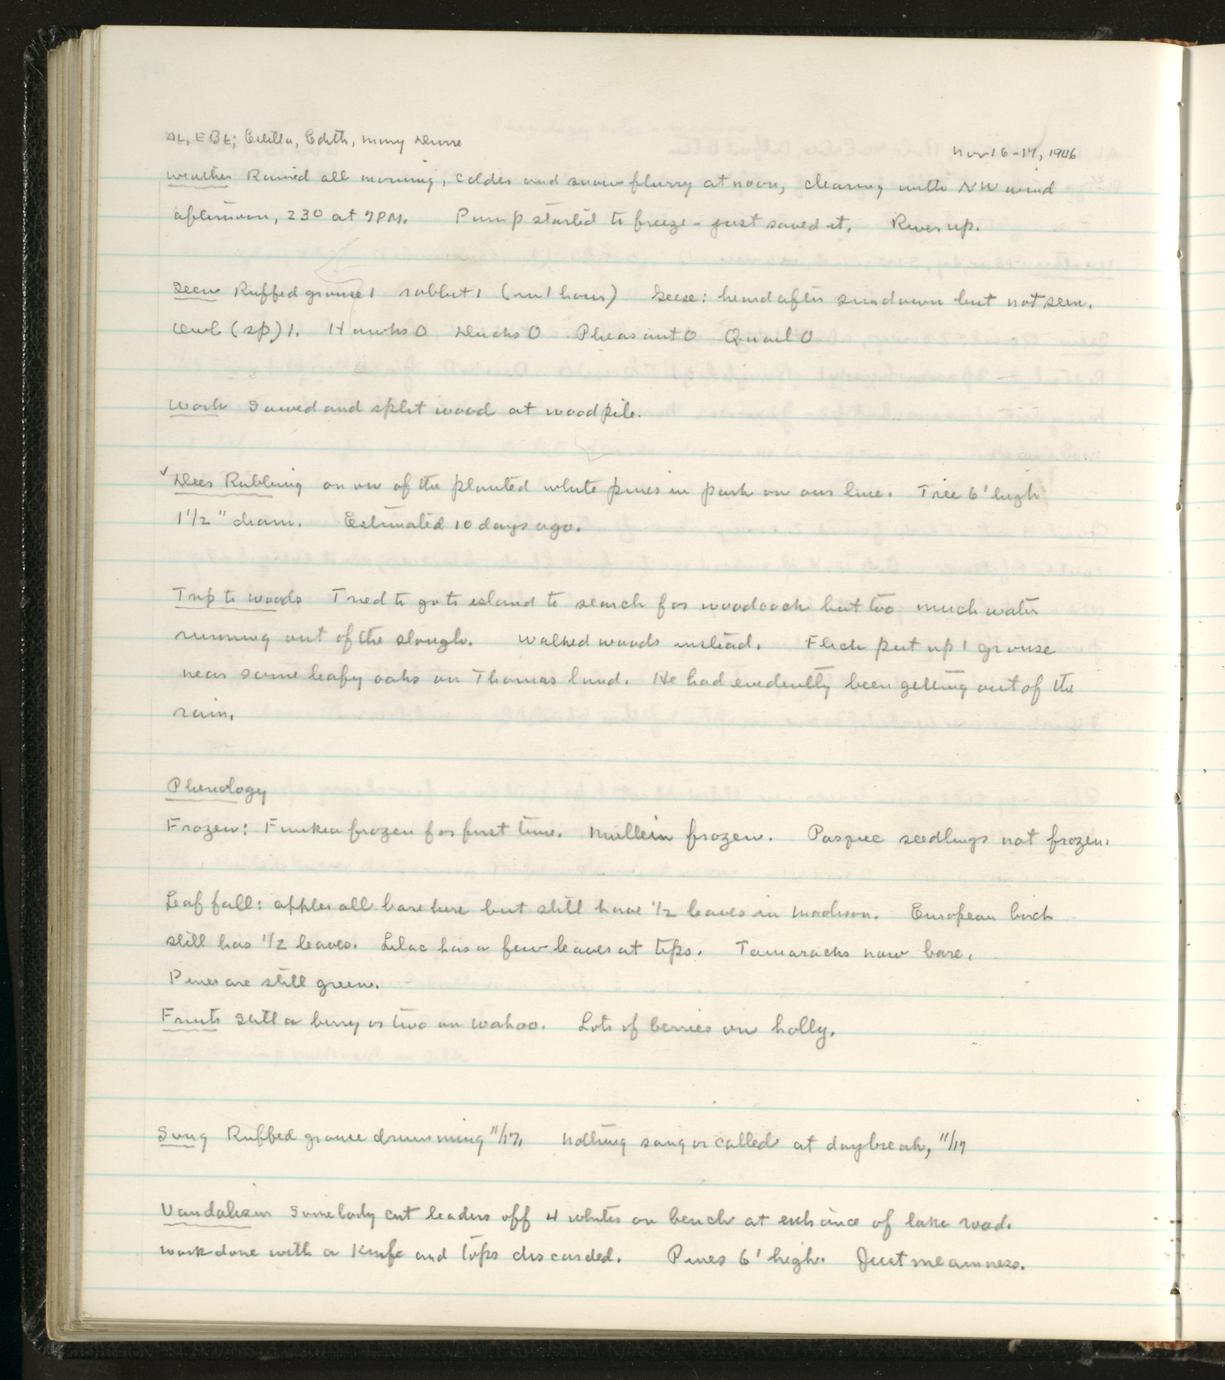 AL, EBL; Estella, Edith, Mary Dunn
Nov 16-17, 1946
Weather Rained all morning, colder and snow flurry at noon, clearing with NW wind
afternoon, 23° at 9 PM. Pump started to freeze - just saved it. River up.
Seen Ruffed grouse 1 rabbit 1 (in 1 hour) Geese: heard after sundown but not seen.
Owl (sp) 1. Hawks 0 Ducks 0 Pheasant 0 Quail 0
Work Sawed and split wood at woodpile.
✓ Deer Rubbing on one of the planted white pines in park on our line. Tree 6' high
1 1/2" diam. Estimated 10 days ago.
Trip to woods Tried to go to island to search for woodcock but too much water
running out of the slough. Walked woods instead. Flick put up 1 grouse
near some leafy oaks on Thomas land. He had evidently been getting out of the
rain.
Phenology
Frozen: Funkea frozen for first time. Mullein frozen. Pasque seedlings not frozen.
Leaf fall: apples all bare here but still have 1/2 leaves in Madison. European birch
still has 1/2 leaves. Lilac has a few leaves at tips. Tamaracks now bare.
Pines are still green.
Fruits Still a berry or two on wahoo. Lots of berries on holly.
Song Ruffed grouse drumming 11/17. Nothing sang or called at daybreak, 11/17
Vandalism Somebody cut leaders off 4 whites on bench at entrance of lake road.
Work done with a knife and tops discarded. Pines 6' high. Just meanness.